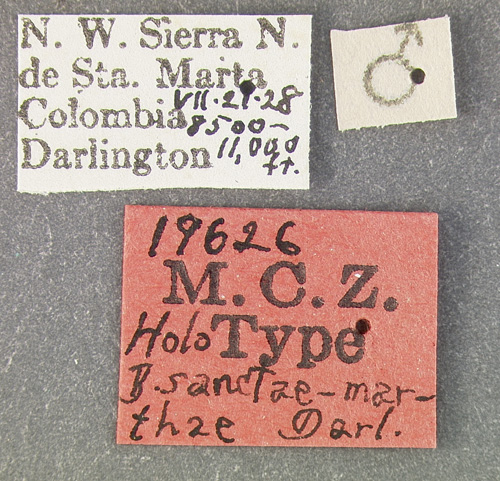 N. W. Sierra N.
de Sta. Marta
Colombia VII·21·28
8500-
Darlington 11,000
ft.
♂
19626
M. C. Z.
Holo Type
B. sanctae-mar-
thae Darl.